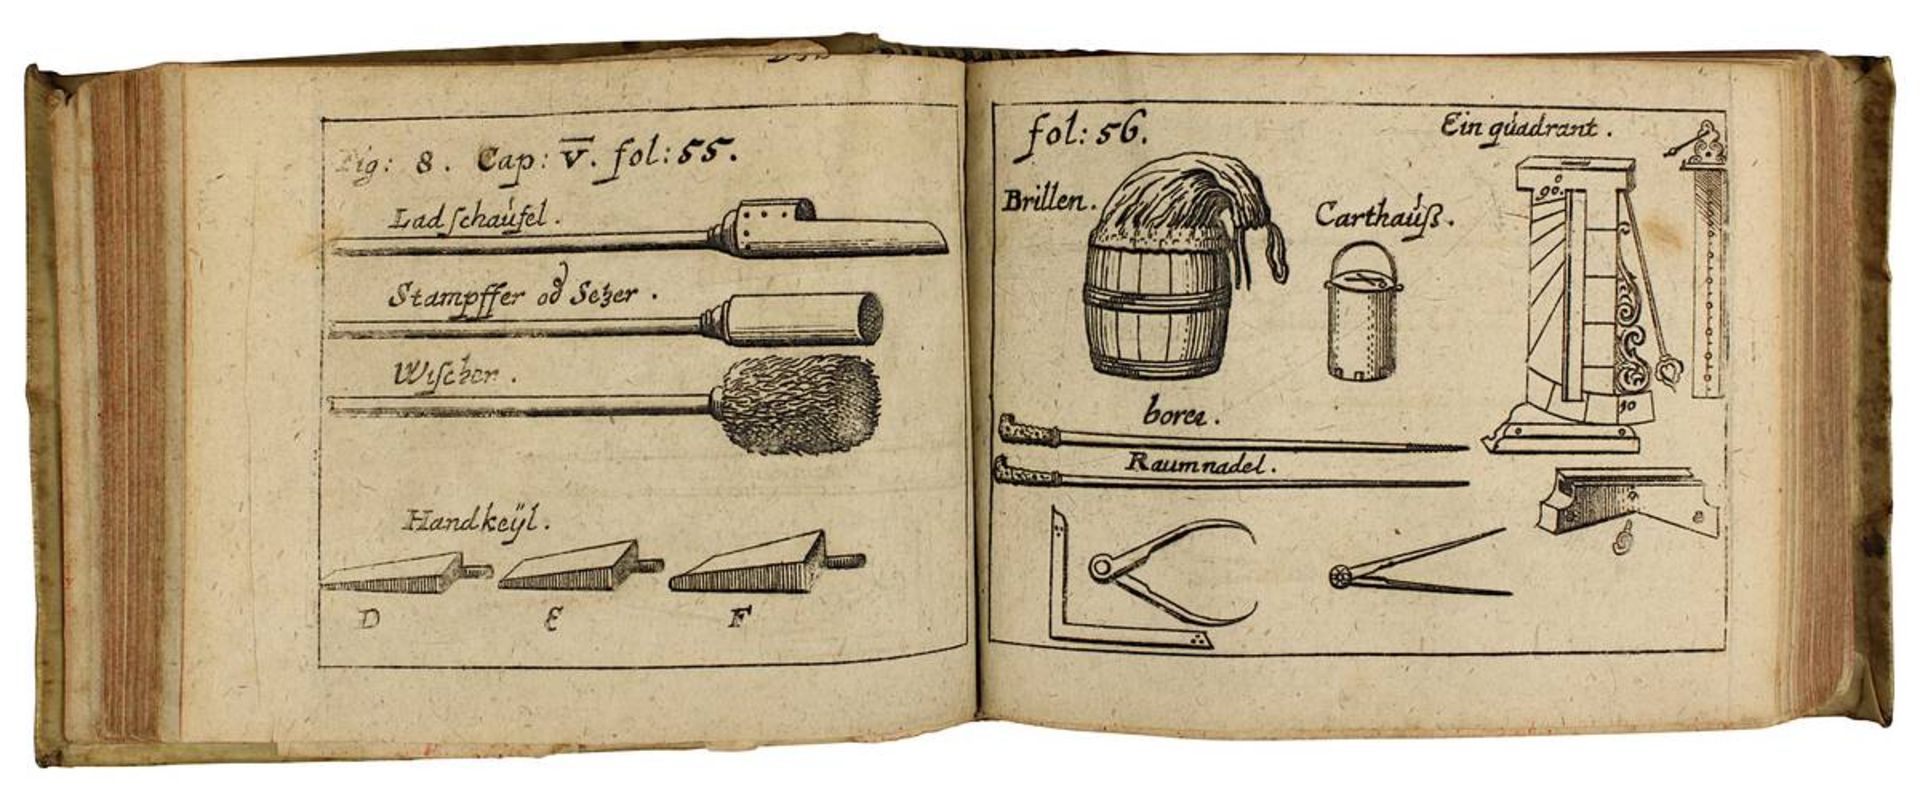 Fig: 8. Cap: V. fol: 55.
Ladschaúfel.
Stampffer od Setzer.
Wischer.
Handkeÿl.
D E F
fol: 56.
Ein qúadrant.
Brillen.
Carthaúß.
90.
10
borer.
Raumnadel.